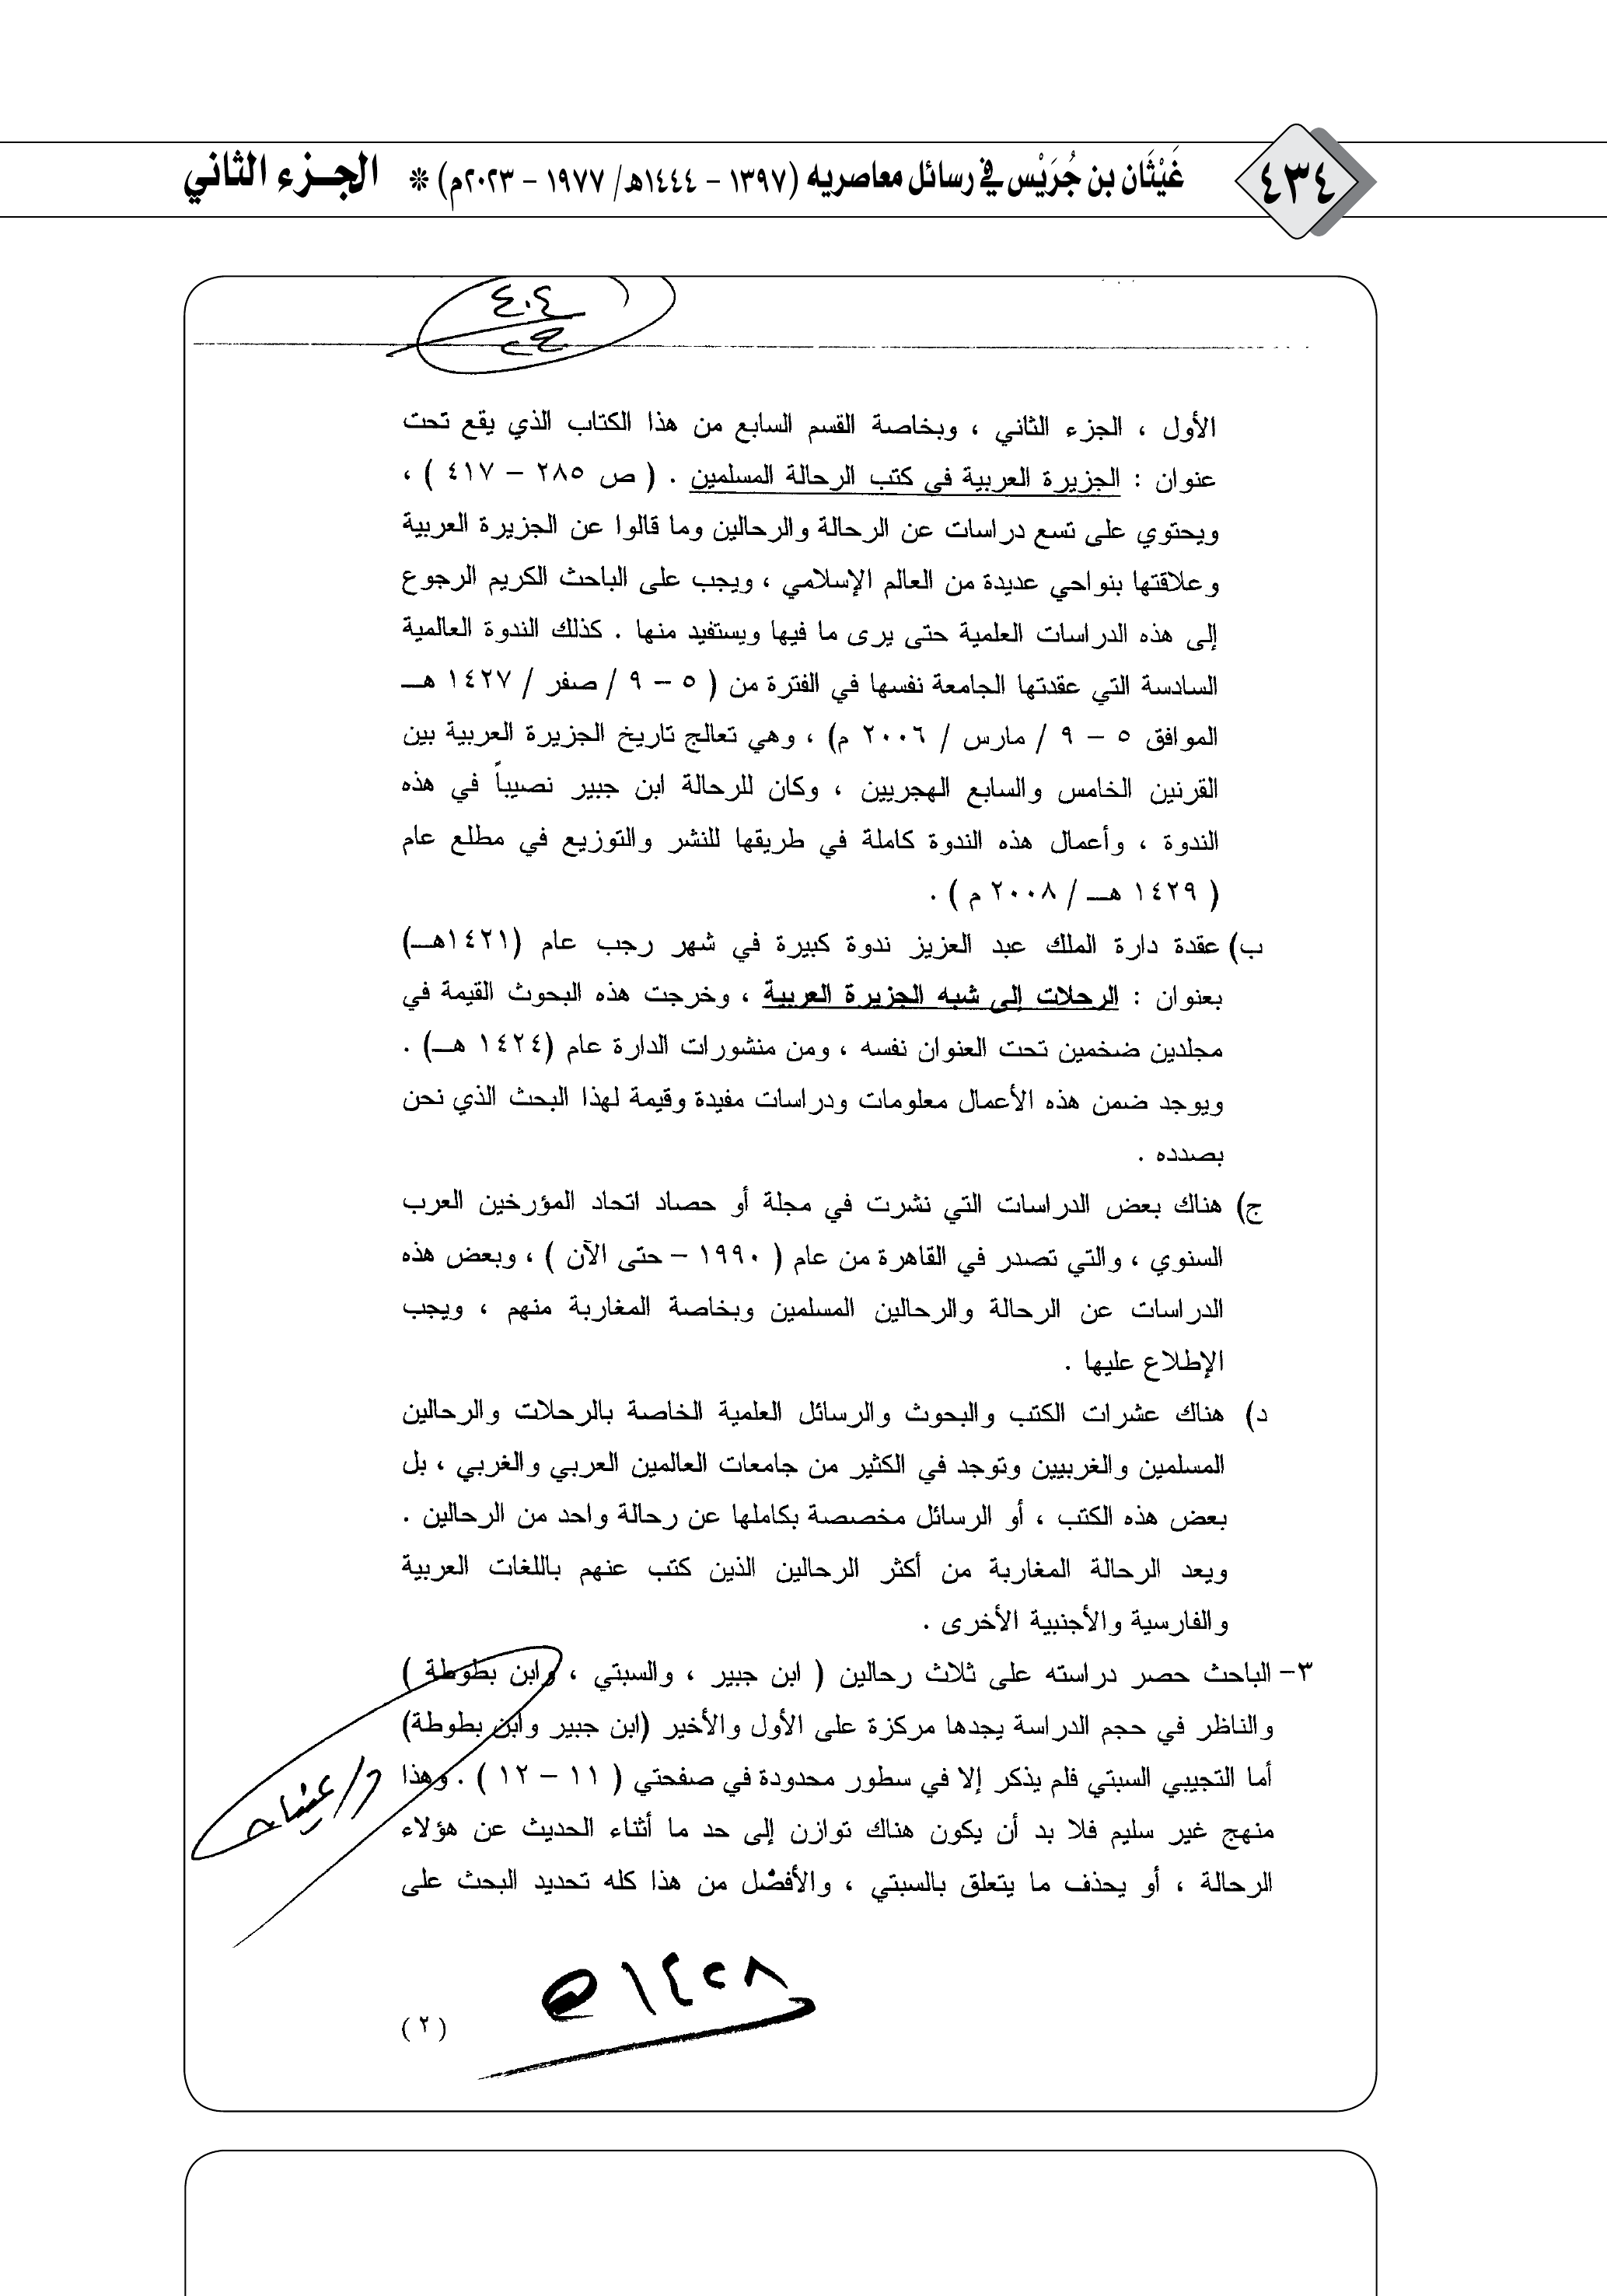 ٤٣٤
غَيْثَان بن جُرَيْس في رسائل معاصريه (١٣٩٧ - ١٤٤٤هـ/ ١٩٧٧ - ٢٠٢٣م) * الجزء الثاني
٤٠٤
الأول ، الجزء الثاني ، وبخاصة القسم السابع من هذا الكتاب الذي يقع تحت
عنوان : الجزيرة العربية في كتب الرحالة المسلمين . ( ص ٢٨٥ – ٤١٧ ) ،
ويحتوي على تسع دراسات عن الرحالة والرحالين وما قالوا عن الجزيرة العربية
وعلاقتها بنواحي عديدة من العالم الإسلامي ، ويجب على الباحث الكريم الرجوع
إلى هذه الدراسات العلمية حتى يرى ما فيها ويستفيد منها . كذلك الندوة العالمية
السادسة التي عقدتها الجامعة نفسها في الفترة من ( ٥ – ٩ / صفر / ١٤٢٧ هـ
الموافق ٥ – ٩ / مارس / ٢٠٠٦ م) ، وهي تعالج تاريخ الجزيرة العربية بين
القرنين الخامس والسابع الهجريين ، وكان للرحالة ابن جبير نصيباً في هذه
الندوة ، وأعمال هذه الندوة كاملة في طريقها للنشر والتوزيع في مطلع عام
( ١٤٢٩ هـ / ٢٠٠٨ م ) .
ب) عقدة دارة الملك عبد العزيز ندوة كبيرة في شهر رجب عام (١٤٢١هـ)
بعنوان : الرحلات إلى شبه الجزيرة العربية ، وخرجت هذه البحوث القيمة في
مجلدين ضخمين تحت العنوان نفسه ، ومن منشورات الدارة عام (١٤٢٤ هـ) .
ويوجد ضمن هذه الأعمال معلومات ودراسات مفيدة وقيمة لهذا البحث الذي نحن
بصدده .
ج) هناك بعض الدراسات التي نشرت في مجلة أو حصاد اتحاد المؤرخين العرب
السنوي ، والتي تصدر في القاهرة من عام ( ١٩٩٠ – حتى الآن ) ، وبعض هذه
الدراسات عن الرحالة والرحالين المسلمين وبخاصة المغاربة منهم ، ويجب
الإطلاع عليها .
د) هناك عشرات الكتب والبحوث والرسائل العلمية الخاصة بالرحلات والرحالين
المسلمين والغربيين وتوجد في الكثير من جامعات العالمين العربي والغربي ، بل
بعض هذه الكتب ، أو الرسائل مخصصة بكاملها عن رحالة واحد من الرحالين .
ويعد الرحالة المغاربة من أكثر الرحالين الذين كتب عنهم باللغات العربية
والفارسية والأجنبية الأخرى .
٣- الباحث حصر دراسته على ثلاث رحالين ( ابن جبير ، والسبتي ، وابن بطوطة )
والناظر في حجم الدراسة يجدها مركزة على الأول والأخير (ابن جبير وابن بطوطة)
أما التجيبي السبتي فلم يذكر إلا في سطور محدودة في صفحتي ( ١١ – ١٢ ) . وهذا
منهج غير سليم فلا بد أن يكون هناك توازن إلى حد ما أثناء الحديث عن هؤلاء
الرحالة ، أو يحذف ما يتعلق بالسبتي ، والأفضل من هذا كله تحديد البحث على
١٤٢٨هـ
( ٢ )